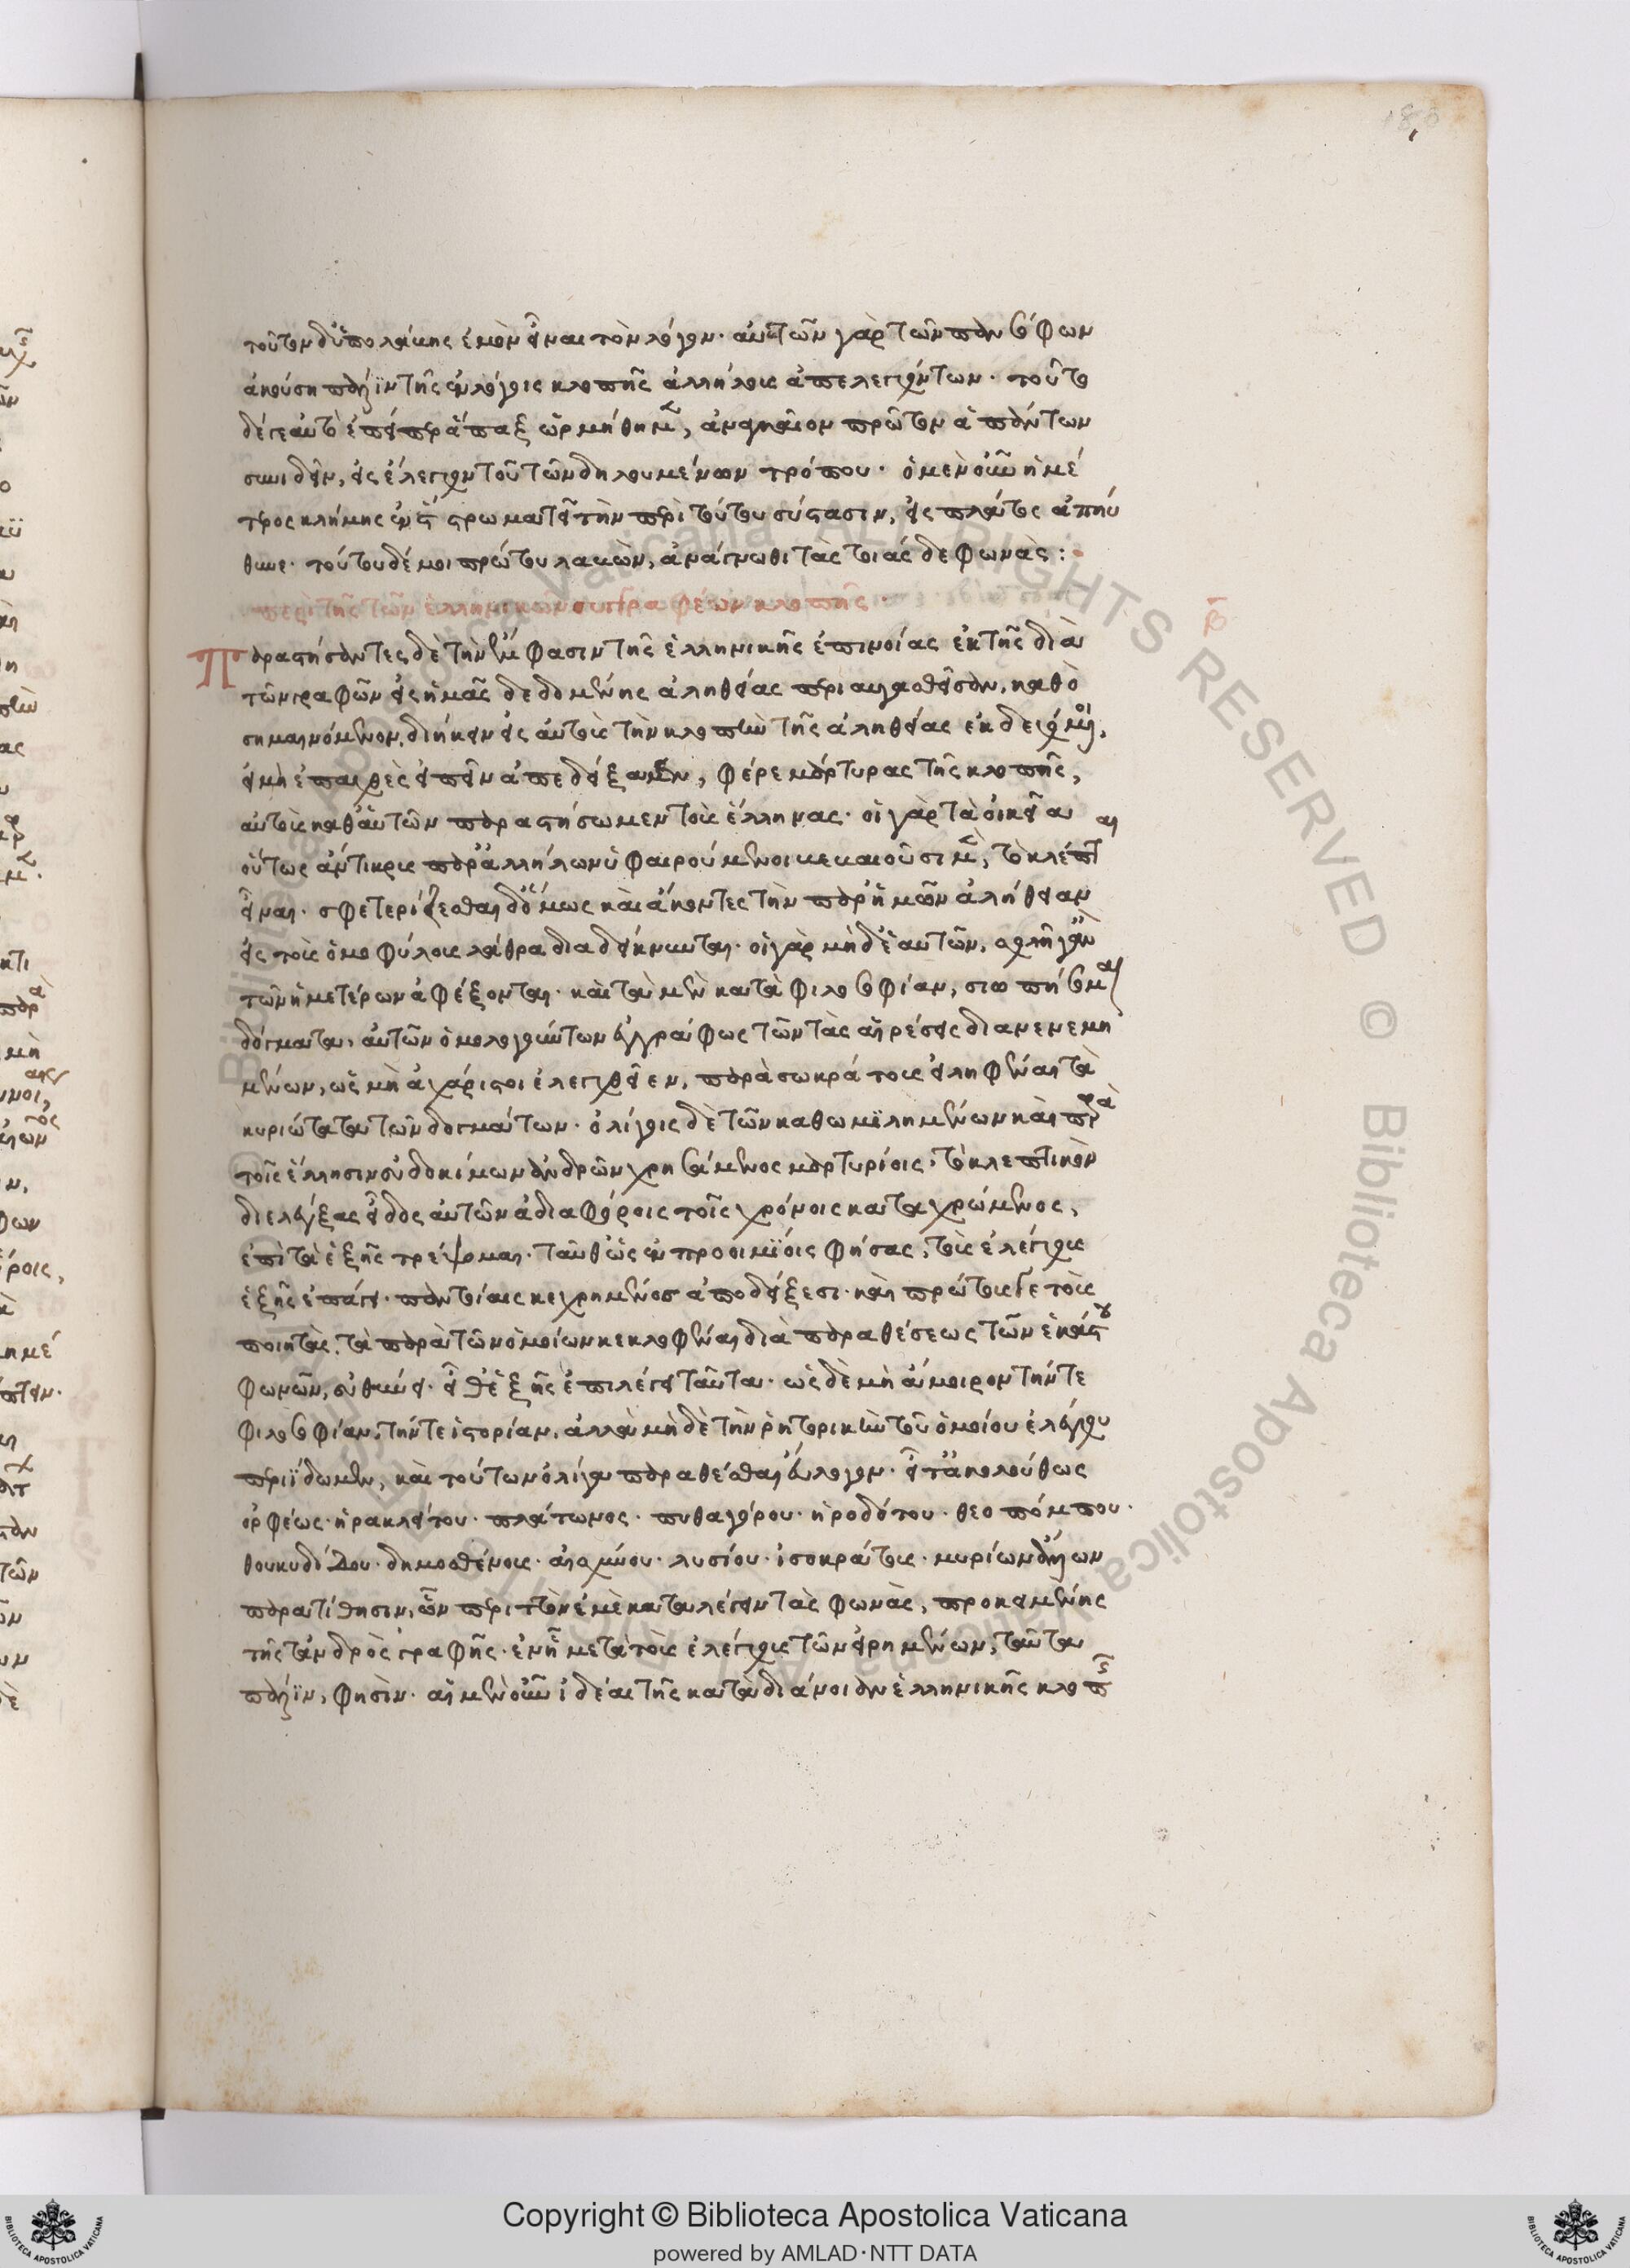 τοῦτον δ' ὑπολάβης ἐμὸν εἶναι τὸν λόγον· αὐτῶν γὰρ τῶν πανσόφων
ἀκούση πάλιν τῆς ἐν λόγοις κλοπῆς ἀλλήλους ἀπελεγχόντων· τοῦτο
δέ γε αὐτὸ ἐπείπερ ἅπαξ ὡρμήθημεν, ἀναγκαῖον πρῶτον ἁπάντων
συνιδεῖν, εἰς ἔλεγχον τοῦ τῶν δηλουμένων τρόπου· ὁ μὲν οὖν ἡμέ
τερος κλήμης ἐν στρωματεῖ τὴν περὶ τούτου σύστασιν, εἰς πλάτος ἀπηύ
θυνε· τούτου δέ μοι πρώτου λαβὼν, ἀνάγνωθι τὰς τοιάσδε φωνὰς:
περὶ τῆς τῶν ἑλληνικῶν συγγραφέων κλοπῆς·
β
Παραστήσαντες δὲ τὴν ἔμφασιν τῆς ἑλληνικῆς ἐπινοίας ἐκ τῆς διὰ
τῶν γραφῶν εἰς ἡμᾶς δεδομένης ἀληθείας περιαυγασθεῖσαν, καθὸ
σημαινόμενον, διήκειν εἰς αὐτοὺς τὴν κλοπὴν τῆς ἀληθείας ἐκδεχόμενοι,
εἰ μὴ ἐπαχθὲς εἰπεῖν ἀπεδείξαμεν, φέρε μάρτυρας τῆς κλοπῆς,
αὐτοὺς καθ' αὑτῶν παραστήσωμεν τοὺς ἕλληνας· οἱ γὰρ τὰ οἰκεῖα
οὕτως ἄντικρυς παρ' ἀλλήλων ὑφαιρούμενοι βεβαιοῦσι μὲν, τὸ κλέπται
εἶναι· σφετερίζεσθαι δ' ὅμως καὶ ἄκοντες τὴν παρ' ἡμῶν ἀλήθειαν
εἰς τοὺς ὁμοφύλους λάθρα διαδείκνυνται· οἱ γὰρ μὴ δὲ ἑαυτῶν, σχολῆ γ' ἂν
τῶν ἡμετέρων ἀφέξονται· καὶ τὰ μὲν κατὰ φιλοσοφίαν, σιωπήσομαι
δόγματα, αὐτῶν ὁμολογούντων ἐγγράφως τῶν τὰς αἱρέσεις διανενεμη
μένων, ὡς μὴ ἀχάριστοι ἐλεγχθεῖεν, παρὰ σωκράτους εἰληφέναι τὰ
κυριώτατα τῶν δογμάτων· ὀλίγοις δὲ τῶν καθωμιλημένων καὶ παρὰ
τοῖς ἕλλησιν εὐδοκίμων ἀνδρῶν χρησάμενος μαρτυρίοις, τὸ κλεπτικὸν
διελέγξας εἶδος αὐτῶν ἀδιαφόροις τοῖς χρόνοις καταχρώμενος,
ἐπὶ τὰ ἑξῆς τρέψομαι· ταῦθ' ὡς ἐν προοιμίοις φήσας, τοὺς ἐλέγχους
ἑξῆς ἐπάγει· παντοίαις κεχρημένος ἀποδείξεσι· καὶ πρώτους γε τοὺς
ποιητὰς, τὰ παρὰ τῶν ὁμοίων κεκλοφέναι διὰ παραθέσεως τῶν ἑκάστου
φωνῶν, εὐθύνει· εἶθ' ἑξῆς ἐπιλέγει ταῦτα· ὡς δὲ μὴ ἄμοιρον τήν τε
φιλοσοφίαν, τήν τε ἱστορίαν, ἀλλὰ μὴ δὲ τὴν ῥητορικὴν τοῦ ὁμοίου ἐλέγχου
περιΐδωμεν, καὶ τούτων ὀλίγα παραθέσθαι εὔλογον· εἶτ' ἀκολούθως
ὀρφέως· ἡρακλείτου· πλάτωνος· πυθαγόρου· ἡροδότου· θεοπόμπου·
θουκυδίδου· δημοσθένους· αἰσχίνου· λυσίου· ἰσοκράτους· μυρίων ἄλλων
παρατίθησιν, ὧν περιττὸν ἐμὲ καταλέγειν τὰς φωνὰς, προκειμένης
τῆς τἀνδρὸς γραφῆς· ἐν ἧ μετὰ τοὺς ἐλέγχους τῶν εἰρημένων, ταῦτα
πάλιν, φησὶν· αἱ μὲν οὖν ἰδέαι τῆς κατὰ διάνοιαν ἑλληνικῆς κλοπῆς